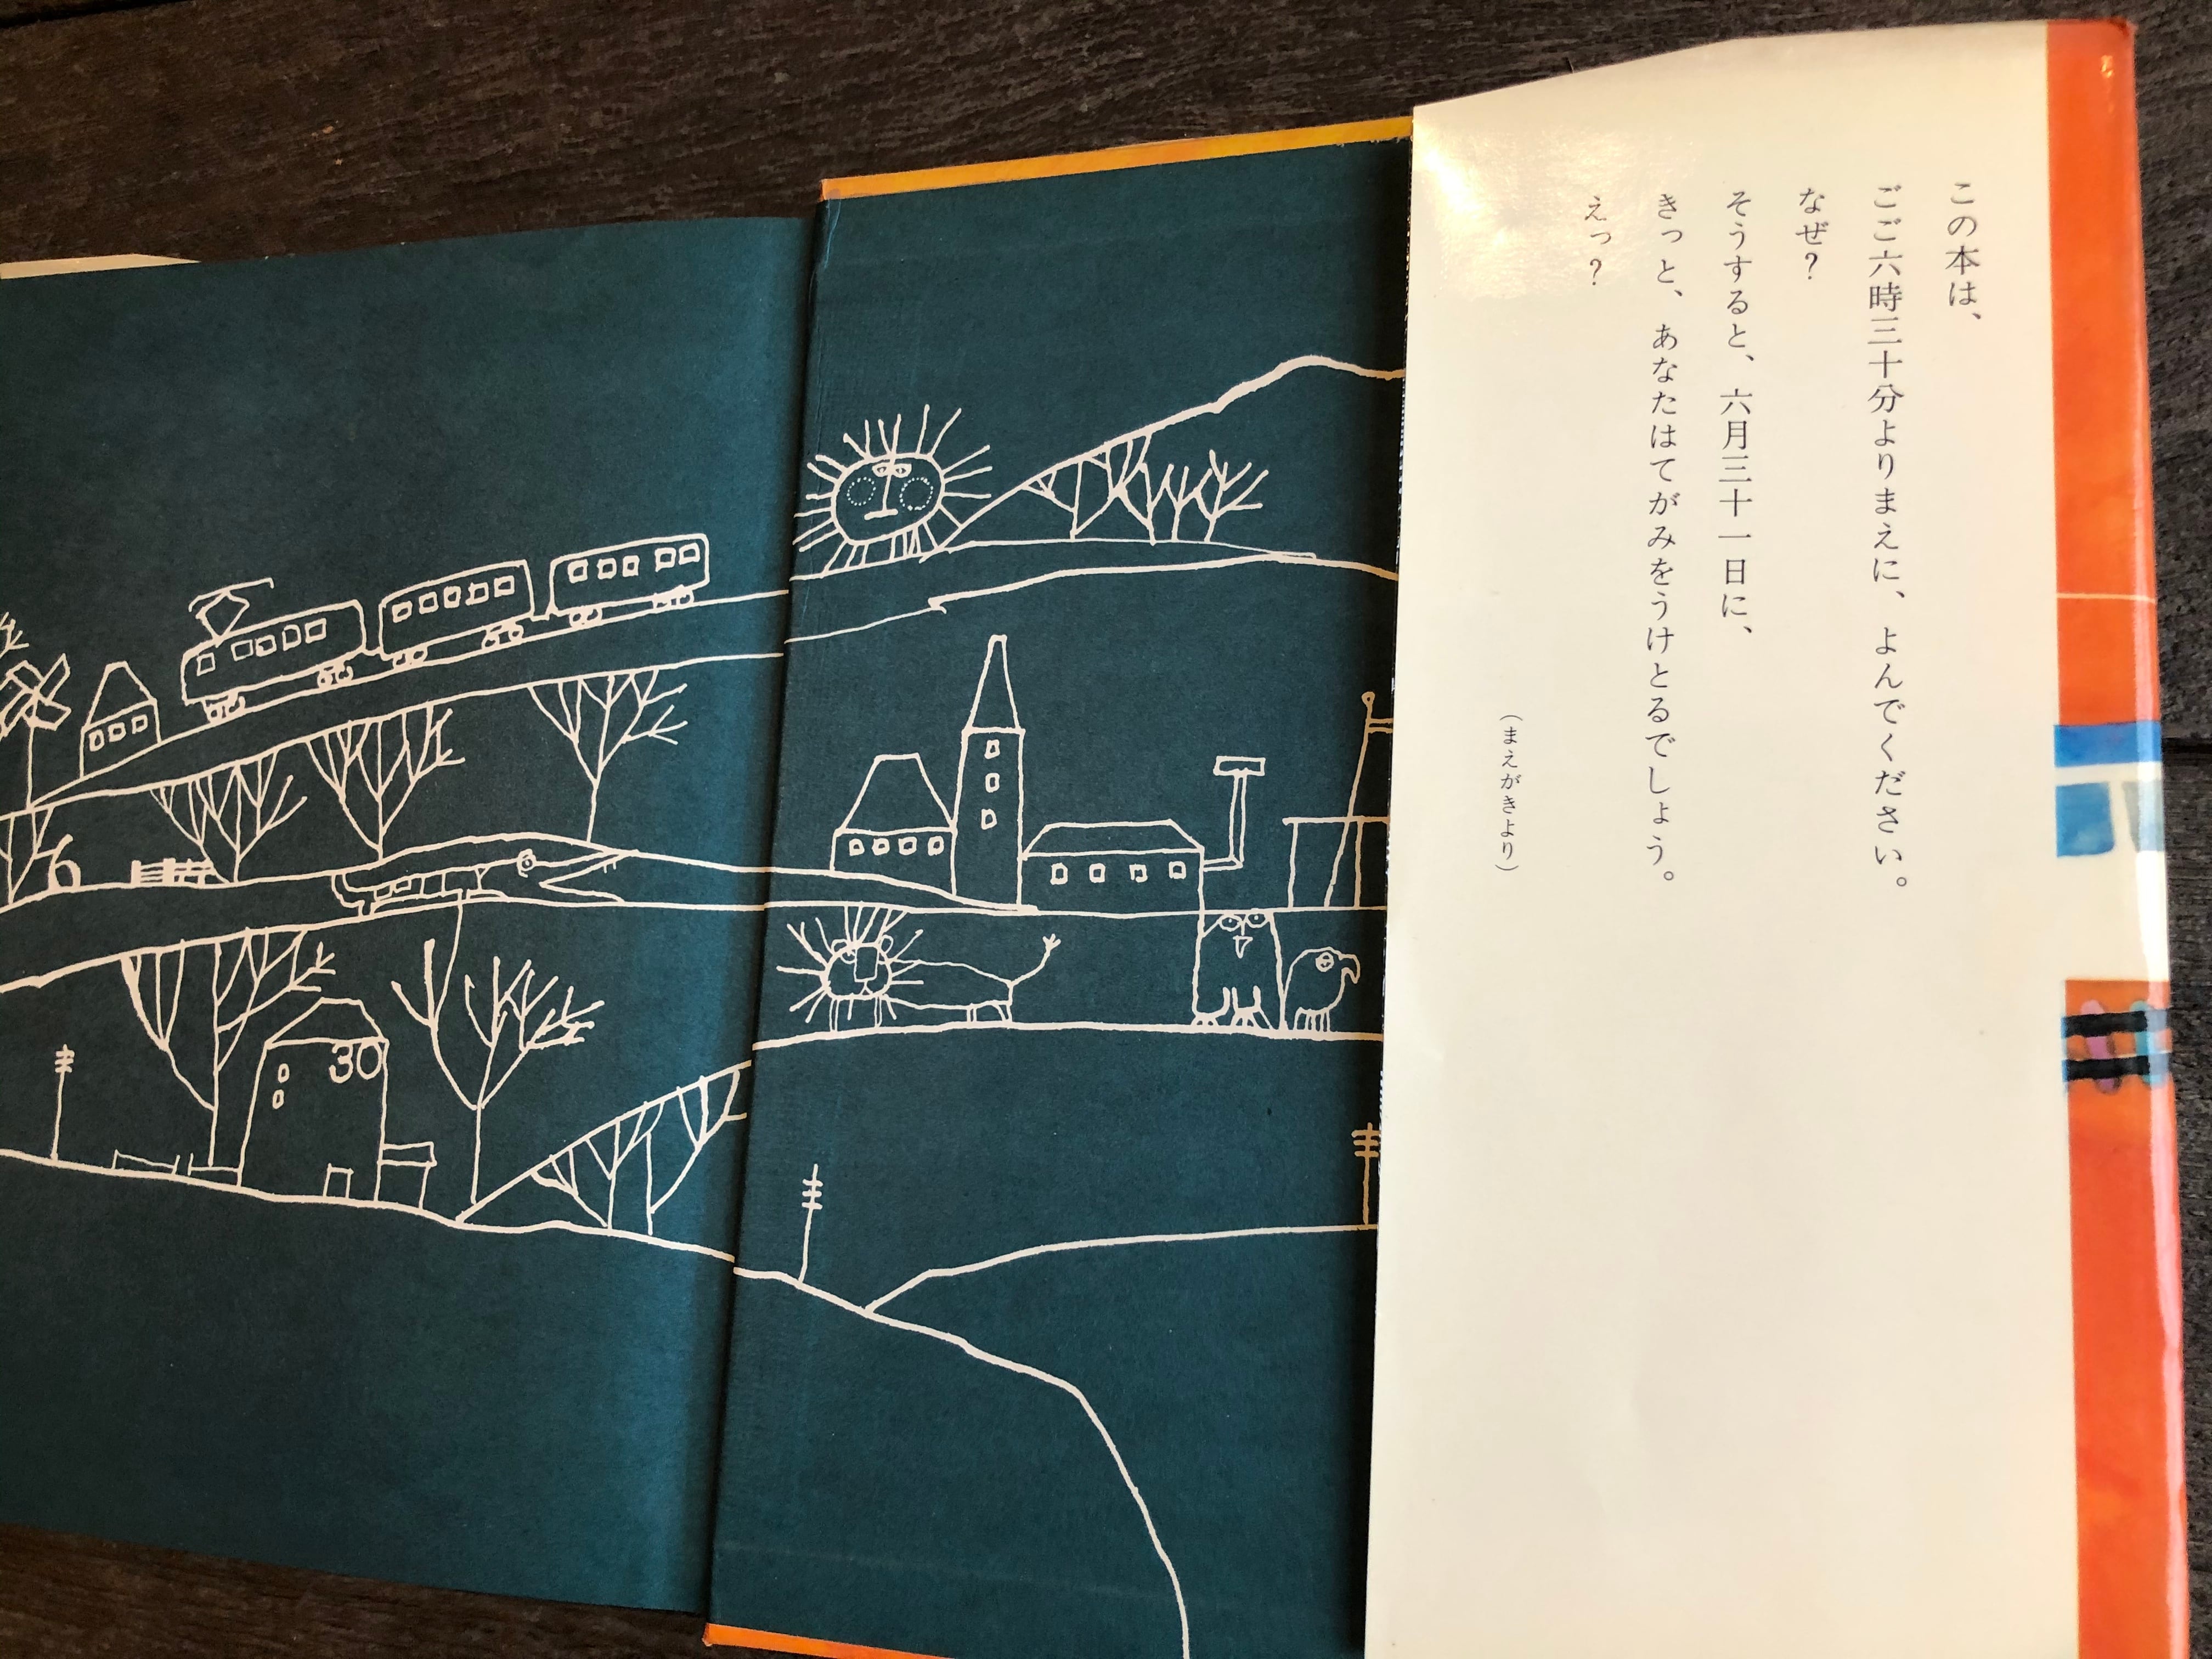 この本は、
ごご六時三十分よりまえに、よんでください。
なぜ？
そうすると、六月三十一日に、
きっと、あなたはてがみをうけとるでしょう。
えっ？
（まえがきより）
6
30